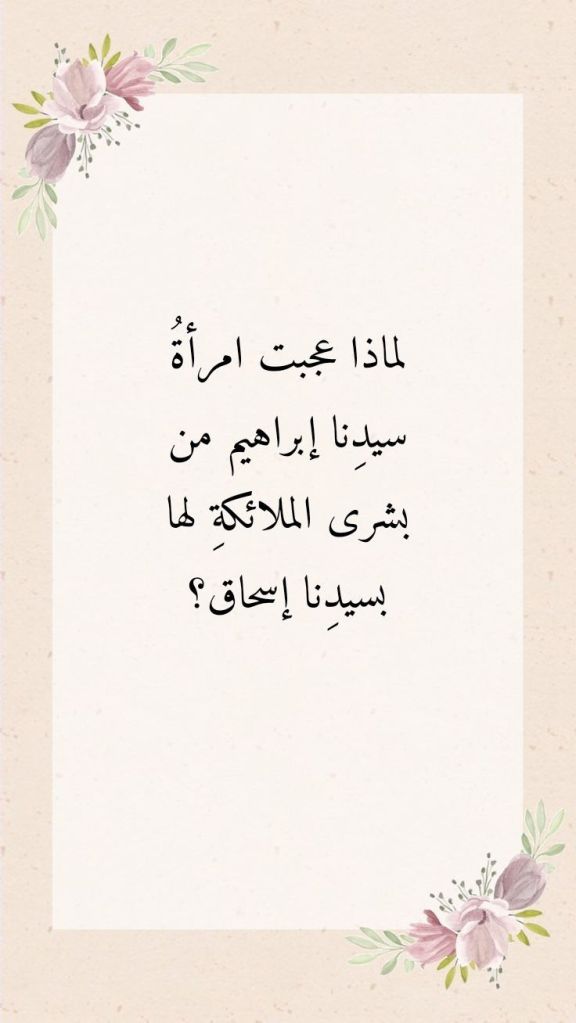 لماذا عجبت امرأةُ
سيدِنا إبراهيم من
بشرى الملائكةِ لها
بسيدِنا إسحاق؟